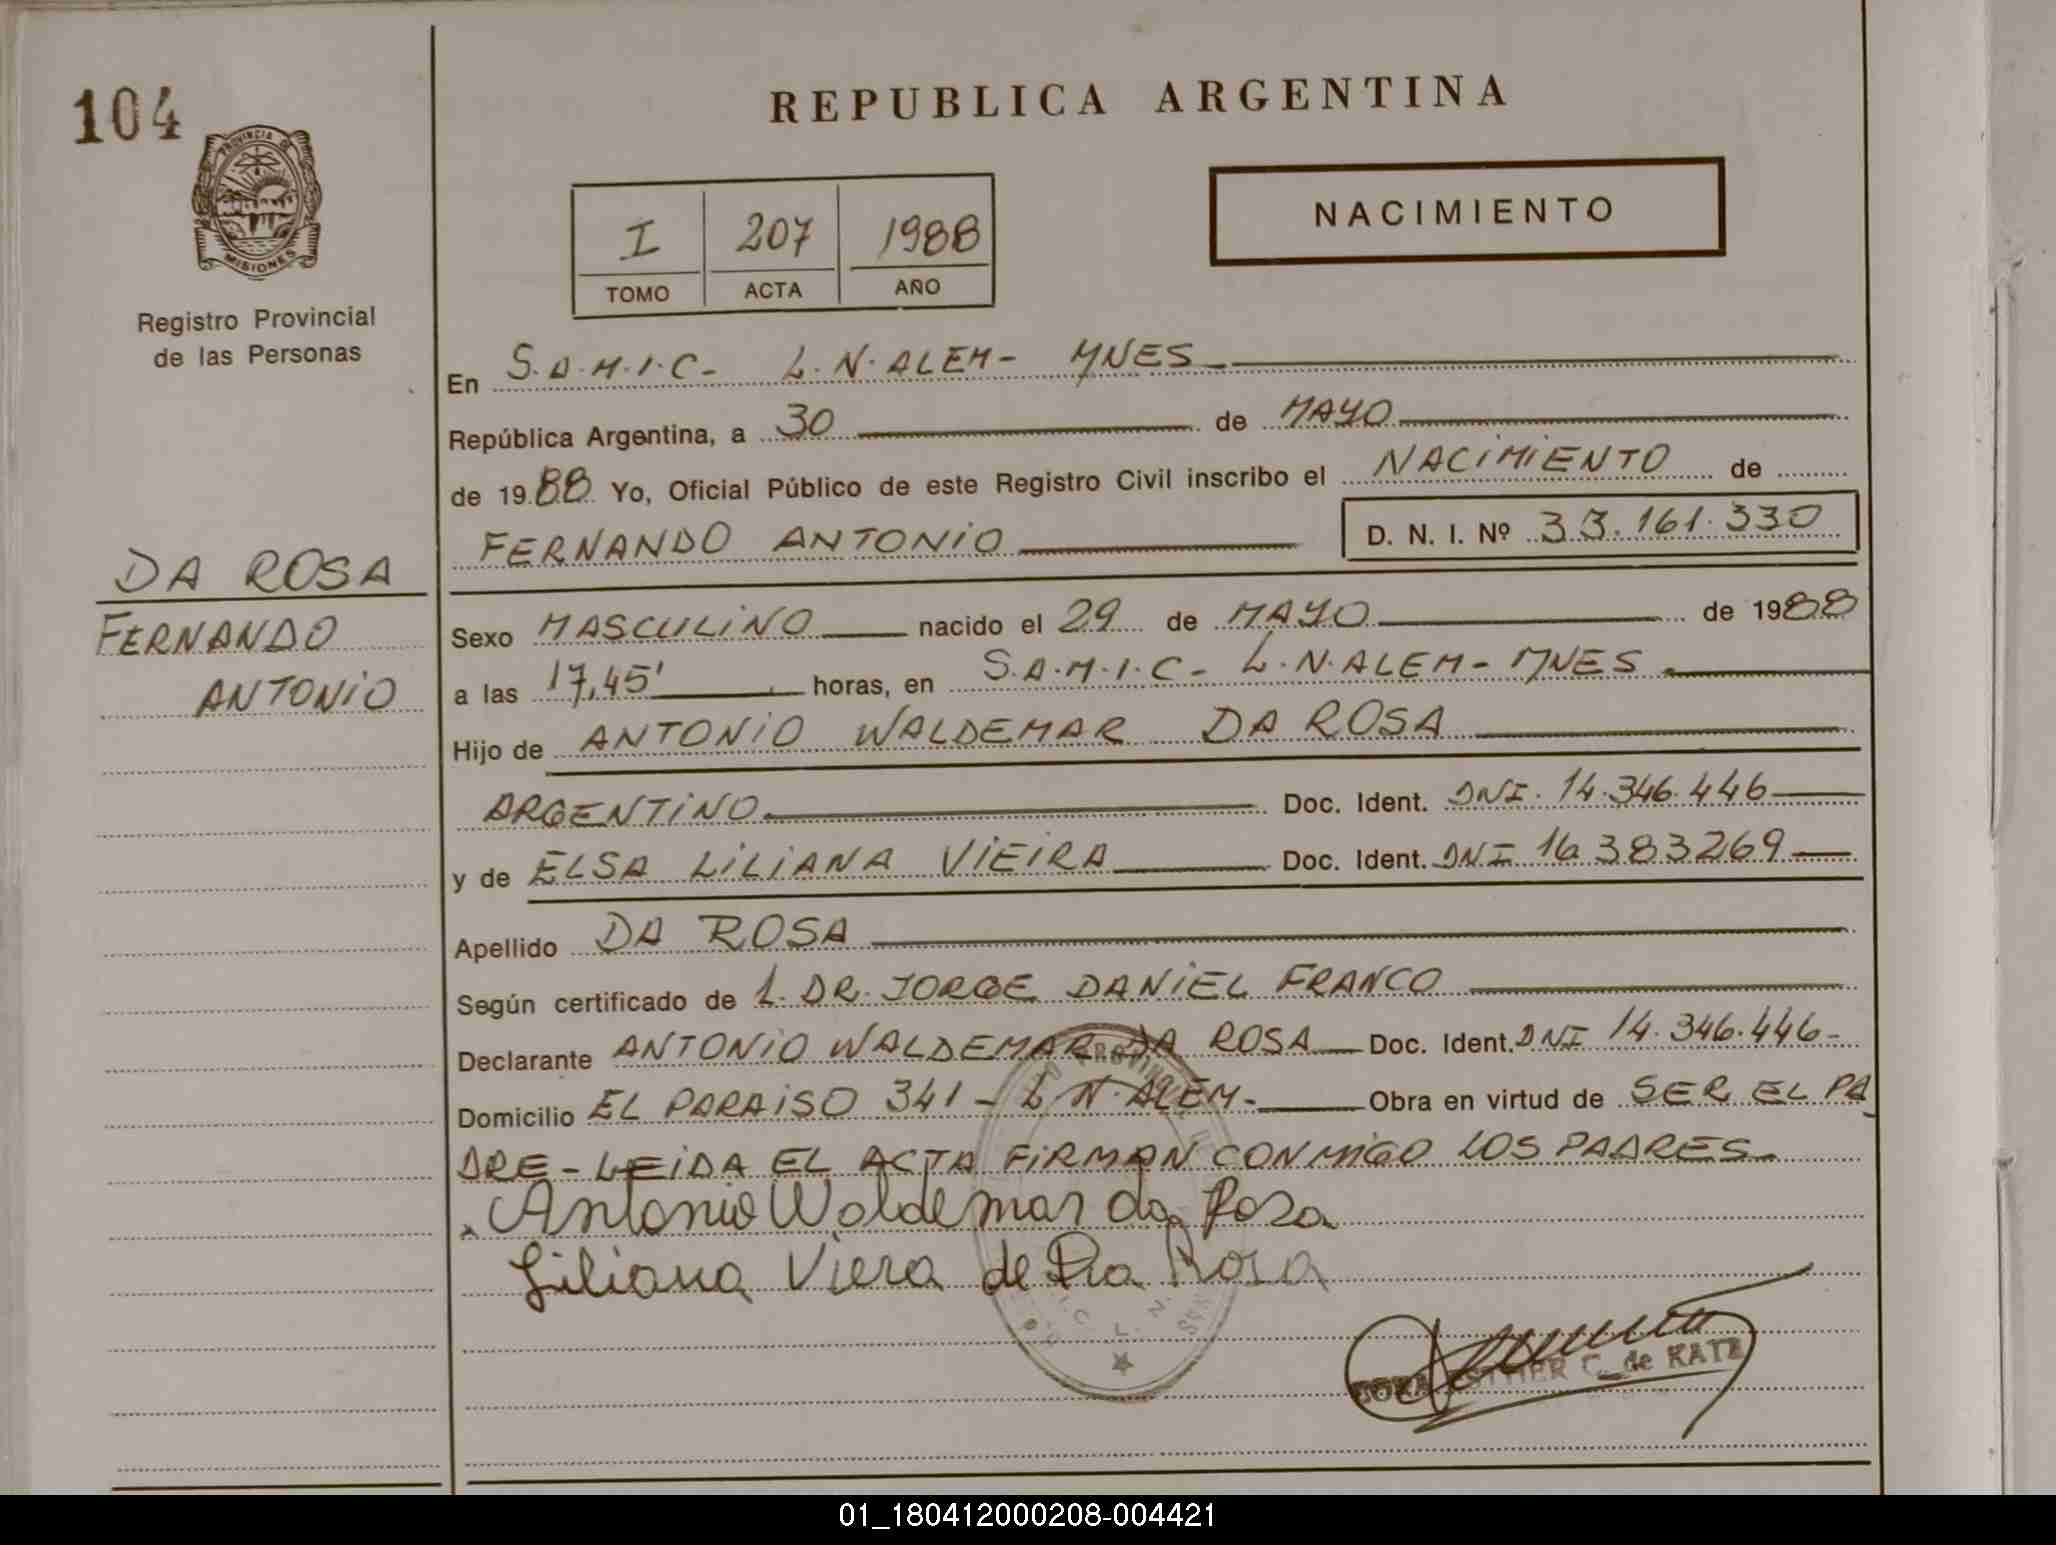 104
REPUBLICA ARGENTINA
PROVINCIA DE
MISIONES
Registro Provincial
de las Personas
I 207 1988
TOMO ACTA AÑO
NACIMIENTO
En S.A.M.I.C- L.N.ALEM- MNES
República Argentina, a 30 de MAYO
de 1988 Yo, Oficial Público de este Registro Civil inscribo el NACIMIENTO de
FERNANDO ANTONIO D. N. I. Nº 33.161.330
DA ROSA
FERNANDO
ANTONIO
Sexo MASCULINO nacido el 29 de MAYO de 1988
a las 17,45' horas, en S.A.M.I.C- L.N.ALEM- MNES
Hijo de ANTONIO WALDEMAR DA ROSA
ARGENTINO Doc. Ident. DNI. 14.346.446
y de ELSA LILIANA VIEIRA Doc. Ident. DNI 16.383269
Apellido DA ROSA
Según certificado de L. DR. JORGE DANIEL FRANCO
Declarante ANTONIO WALDEMAR DA ROSA Doc. Ident. DNI 14.346.446-
Domicilio EL PARAISO 341 - L.N.ALEM- Obra en virtud de SER EL PA
DRE-LEIDA EL ACTA FIRMAN CONMIGO LOS PADRES-
Antonio Waldemar da Rosa
Liliana Viera de Da Rosa
ESTHER C. de KATZ
01_180412000208-004421